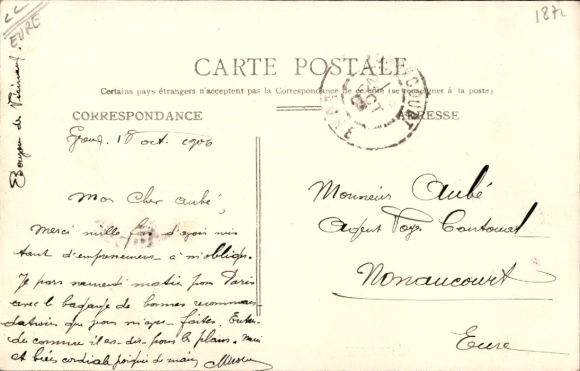 EURE
187
CARTE POSTALE
Certains pays étrangers n'acceptent pas la Correspondance de ce côté (se renseigner à la poste)
CORRESPONDANCE
ADRESSE
18 oct. 1906
Mon Cher Aubé,
Merci mille fois d'avoir mis
tant d'empressement à m'obliger.
Je pars vendredi matin pour Paris
avec le bagage de bonnes recomman
dations que vous m'avez faites.
et bien cordiale poignée de mains
Monsieur Aubé
Agent Voyer Cantonal
Nonancourt
Eure